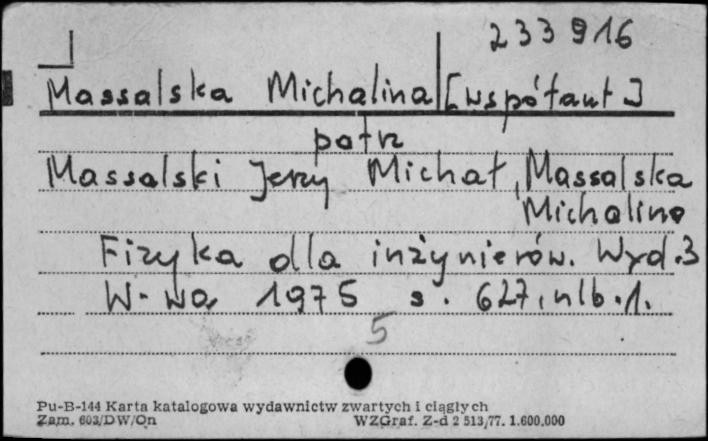 233916
Massalska Michalina [współaut]
patrz
Massalski Jerzy Michał, Massalska
Michalina
Fizyka dla inżynierów. Wyd. 3
W-wa 1975 s. 627, nlb. 1.
5
Pu-B-144 Karta katalogowa wydawnictw zwartych i ciągłych
Zam. 603/DW/On WZGraf. Z-d 2 513/77. 1.600.000